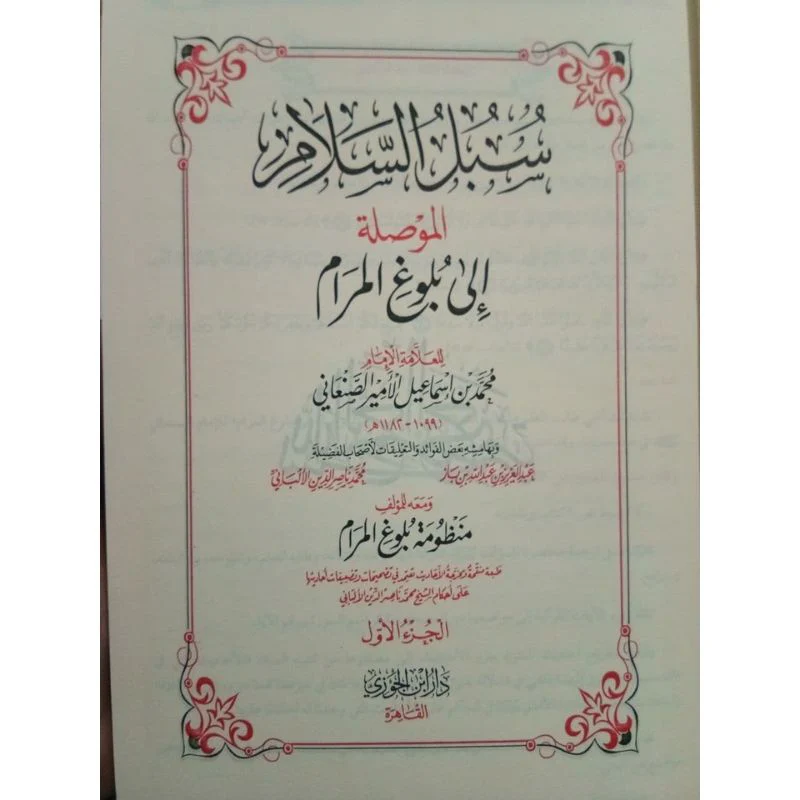 سُبُلُ السَّلَامِ
الموْصلة
إلىٰ بُلُوغِ المَرَام
للعَلَّامَةِ الإِمَامِ
مُحَمَّد بْن إِسْمَاعِيل الأَمِيْر الصَّنْعَانِي
(١٠٩٩ - ١١٨٢ هـ)
وَبهَامِشِهِ بَعْض الفَوَائد وَالتَعْلِيقَات لأَصْحَاب الفَضِيْلَة
عَبْد العَزيْز بْن عَبْد اللّٰه بْن بَاز مُحَمَّد نَاصِر الدِّين الأَلبَانيْ
وَمَعَه للمُؤلِف
مَنْظُومَة بُلُوغِ المَرَام
طبعَة منقّحَة ومخرّجَة الأحَاديث تعتمد في تصْحيحَات وتضعيفَات أحَاديثها
عَلى أحكام الشيخ محمّد نَاصِر الدِّين الألبَاني
الجُزْءُ الأَوَّل
دَارُ ابْنِ الجَوْزِي
القَاهِرَة